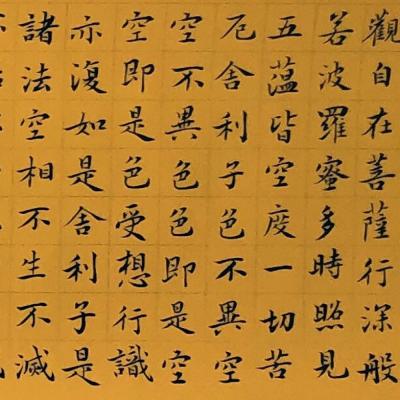 觀自在菩薩行深般
若波羅蜜多時照見
五蘊皆空度一切苦
厄舍利子色不異空
空不異色色即是空
空即是色受想行識
亦復如是舍利子是
諸法空相不生不滅